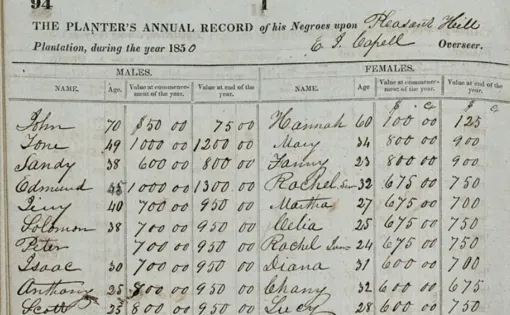 94
1
THE PLANTER'S ANNUAL RECORD of his Negroes upon Pleasant Hill
Plantation, during the year 1850 E. J. Capell Overseer.
MALES. FEMALES.
NAME. Age. Value at commencement of the year. Value at end of the year. NAME. Age. Value at commencement of the year. Value at end of the year.
$ c $ c
John 70 $50 00 75 00 Hannah 60 100 00 125
Tone 49 1000 00 1200 00 Mary 34 800 00 900
Sandy 38 600 00 800 00 Fanny 23 800 00 900
Edmund 45 1000 00 1300 00 Rachel Sen 32 675 00 750
40 700 00 950 00 Martha 27 675 00 700
Solomon 38 700 00 950 00 Celia 25 675 00 750
Peter 700 00 950 00 Rachel Jun 24 675 00 750
Isaac 30 700 00 950 00 Diana 31 600 00 700
Anthony 25 800 00 950 00 Chany 32 600 00 675
Scott 25 800 00 950 00 Lucy 28 600 00 750